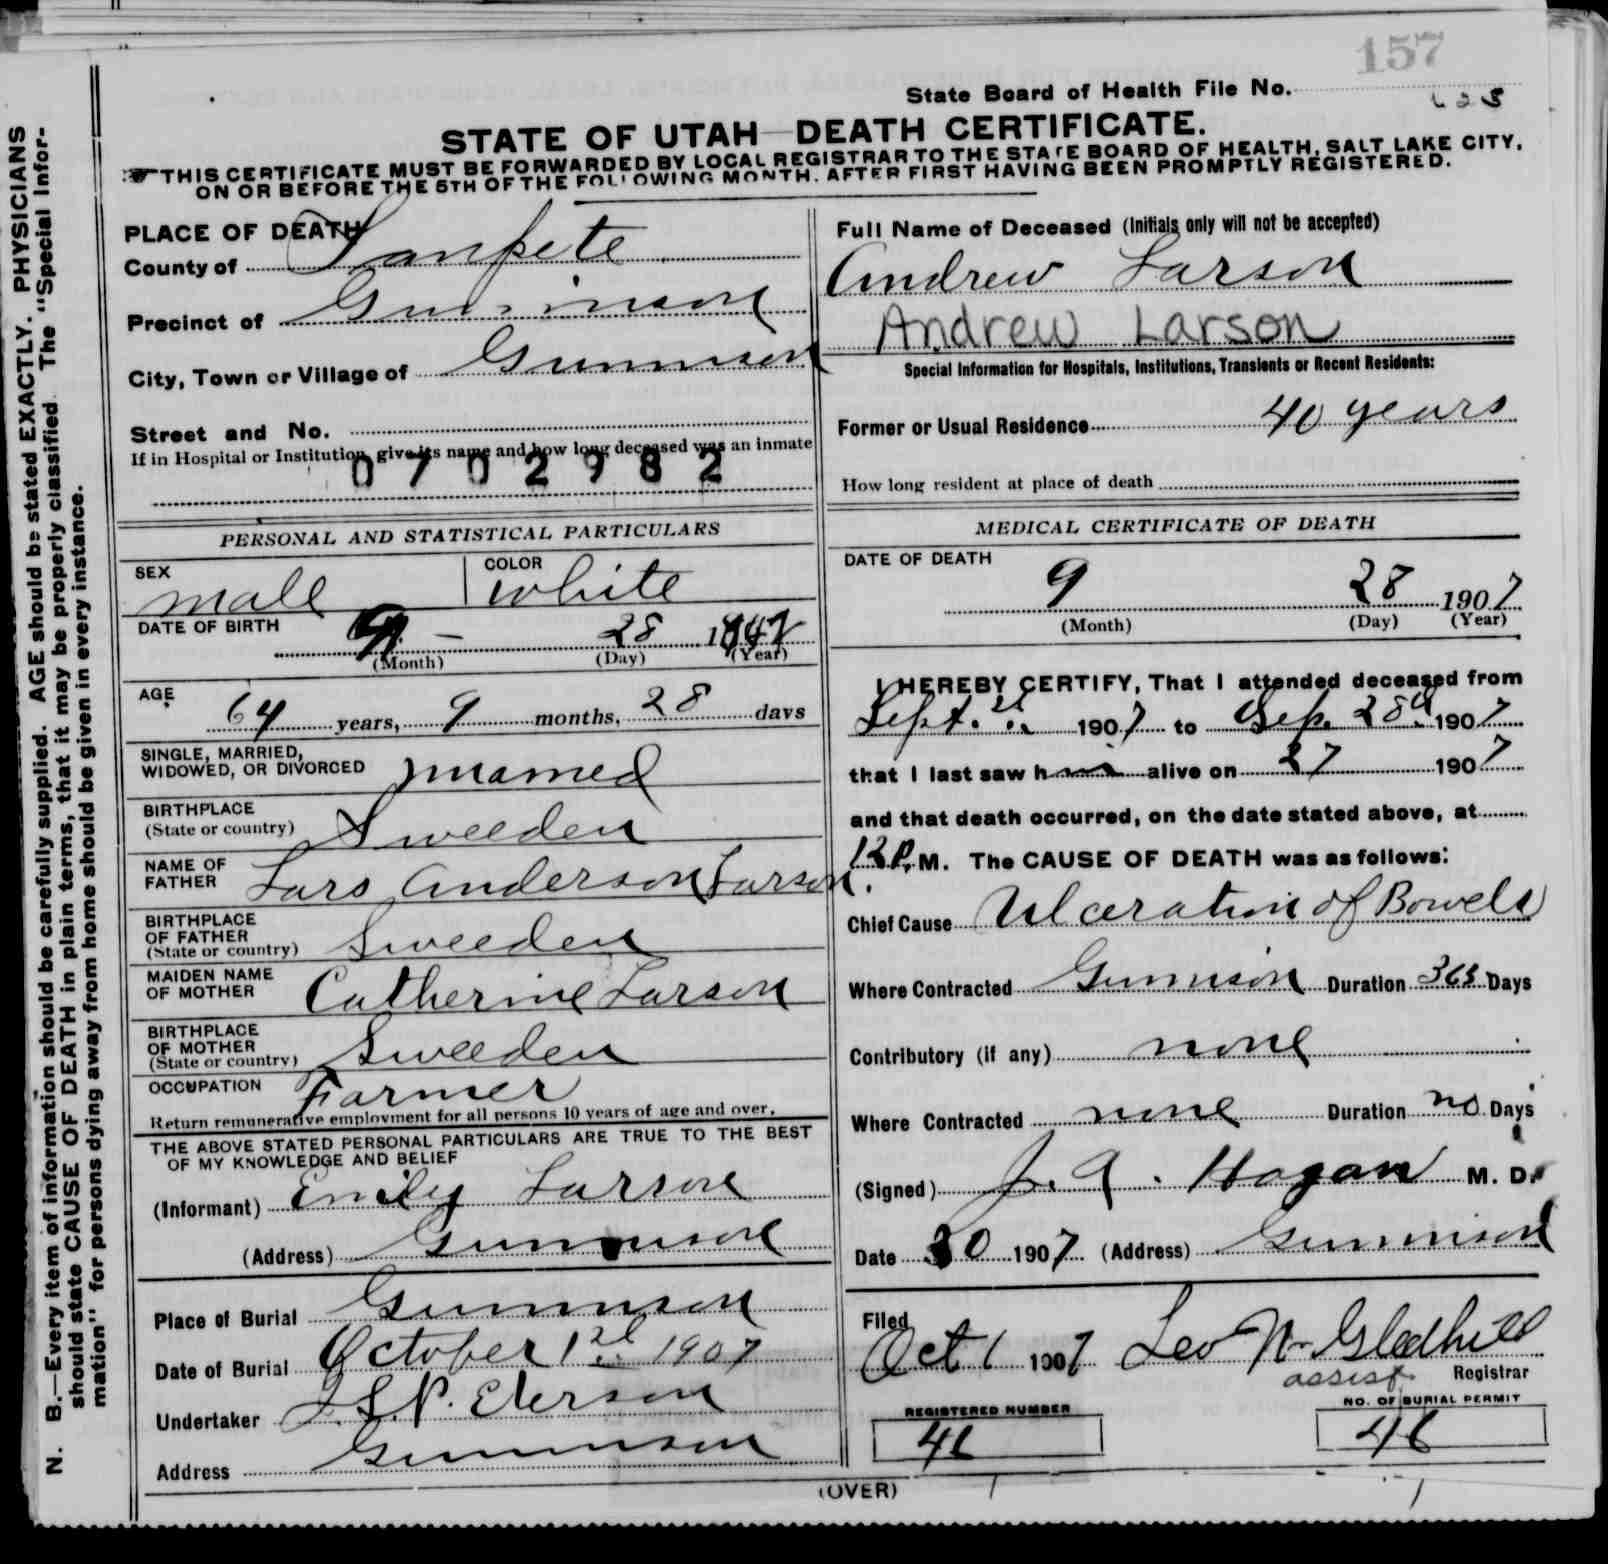 157
State Board of Health File No. 623
STATE OF UTAH—DEATH CERTIFICATE.
THIS CERTIFICATE MUST BE FORWARDED BY LOCAL REGISTRAR TO THE STATE BOARD OF HEALTH, SALT LAKE CITY,
ON OR BEFORE THE 5TH OF THE FOLLOWING MONTH, AFTER FIRST HAVING BEEN PROMPTLY REGISTERED.
N. B.—Every item of information should be carefully supplied. AGE should be stated EXACTLY. PHYSICIANS
should state CAUSE OF DEATH in plain terms, that it may be properly classified. The "Special Infor-
mation" for persons dying away from home should be given in every instance.
PLACE OF DEATH
County of Sanpete
Precinct of Gunnison
City, Town or Village of Gunnison
Street and No.
If in Hospital or Institution, give its name and how long deceased was an inmate
0702982
PERSONAL AND STATISTICAL PARTICULARS
SEX male COLOR white
DATE OF BIRTH 9 - 28
(Month) (Day) (Year)
AGE 64 years, 9 months, 28 days
SINGLE, MARRIED,
WIDOWED, OR DIVORCED married
BIRTHPLACE
(State or country) Sweeden
NAME OF
FATHER Lars Anderson Larson.
BIRTHPLACE
OF FATHER
(State or country) Sweeden
MAIDEN NAME
OF MOTHER Catherine Larson
BIRTHPLACE
OF MOTHER
(State or country) Sweeden
OCCUPATION Farmer
Return remunerative employment for all persons 10 years of age and over.
THE ABOVE STATED PERSONAL PARTICULARS ARE TRUE TO THE BEST
OF MY KNOWLEDGE AND BELIEF
(Informant) Emily Larson
(Address) Gunnison
Place of Burial Gunnison
Date of Burial October 1st 1907
Undertaker J.S.P. Eterson
Address Gunnison
Full Name of Deceased (Initials only will not be accepted)
Andrew Larson
Andrew Larson
Special Information for Hospitals, Institutions, Transients or Recent Residents:
Former or Usual Residence 40 years
How long resident at place of death
MEDICAL CERTIFICATE OF DEATH
DATE OF DEATH
9 28 1907
(Month) (Day) (Year)
I HEREBY CERTIFY, That I attended deceased from
Sept. 1907 to Sep. 28 1907
that I last saw him alive on 27 1907
and that death occurred, on the date stated above, at
12 P. M. The CAUSE OF DEATH was as follows:
Chief Cause Ulceration of Bowels
Where Contracted Gunnison Duration 363 Days
Contributory (if any) none
Where Contracted none Duration no Days
(Signed) J. A. Hagan M. D.
Date 30 1907 (Address) Gunnison
Filed
Oct 1 1907 Leo N Gledhill
assist Registrar
REGISTERED NUMBER
46
NO. OF BURIAL PERMIT
46
(OVER)